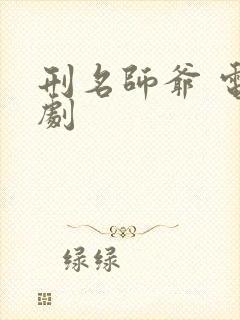 刑名師爺 電
劇
绿绿